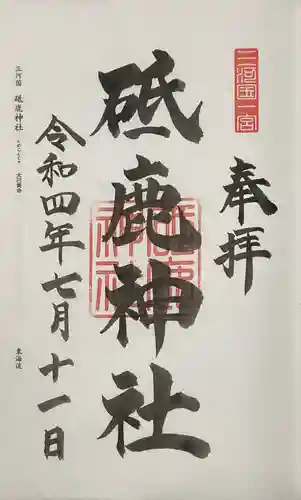 三河国一宮
奉拝
砥鹿神社
砥鹿神社
令和四年七月十一日
三河国 砥鹿神社
東海道